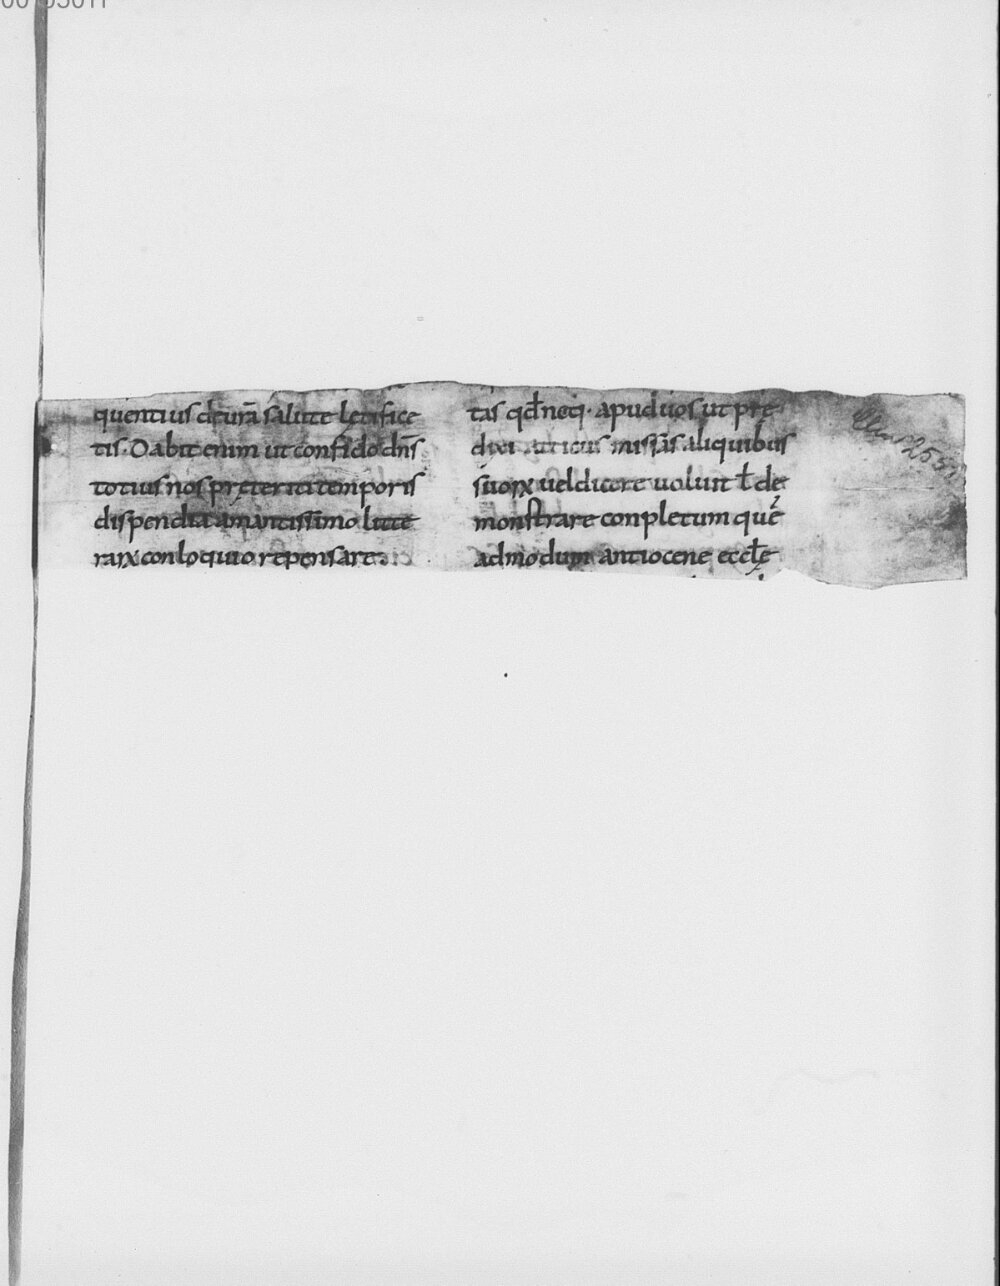 quentius de urā salute lętifice
tis. Dabit enim ut confido dn̄s
totius nos pręteriti temporis
dispendia amantissimo litte
rarꝝ conloquio repensare.
tas qđ neq; apud vos ut pre
dixi atticus missīs aliquibus
suorꝝ vel dicere voluit ł de
monstrare conpletum quē
admodum antiocene eccłe